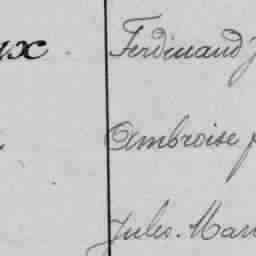 Ferdinand
Ambroise
Jules. Mar